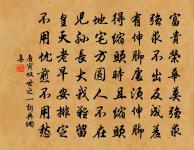 富貴榮華莫強求
強求不出反成羞
有伸脚處須伸脚
得縮頭時且縮頭
地宅方圓人不在
兒孫長大我難留
皇天老早安排定
不用憂煎不用愁
唐寅嘆世之一詞典網
集